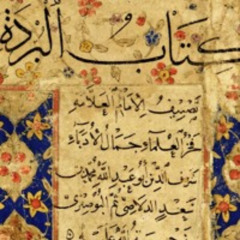 كتاب البردة
تصنيف الإمام العلامه
فخر العلماء جمال الأدباء
شرف الدين أبو عبد الله محمد بن
سعيد الدلاصي ثم البوصيري
الله عليه